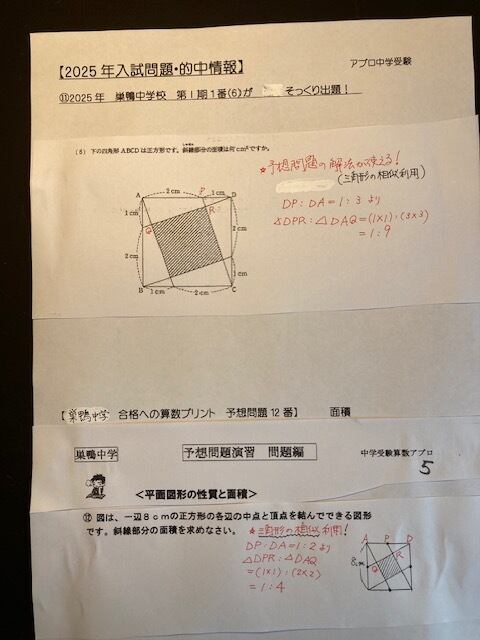 【2025年入試問題・的中情報】
アプロ中学受験
⑪2025年 巣鴨中学校 第Ⅰ期1番(6)が そっくり出題！
(6) 下の四角形ABCDは正方形です。斜線部分の面積は何cm²ですか。
しゃせん
★予想問題の解法が使える！
(三角形の相似利用)
DP：DA＝1：3より
△DPR：△DAQ＝(1×1)：(3×3)
＝1：9
2cm P 1cm
A D
1cm R
Q 2cm
2cm
1cm
B 1cm 2cm C
【巣鴨中学 合格への算数プリント 予想問題12番】 面積
巣鴨中学 予想問題演習 問題編 中学受験算数アプロ
5
＜平面図形の性質と面積＞
⑫ 図は、一辺8cmの正方形の各辺の中点と頂点を結んでできる図形
です。斜線部分の面積を求めなさい。
★三角形の相似利用！
DP：DA＝1：2より
△DPR：△DAQ
＝(1×1)：(2×2)
＝1：4
A P D
8cm R
Q